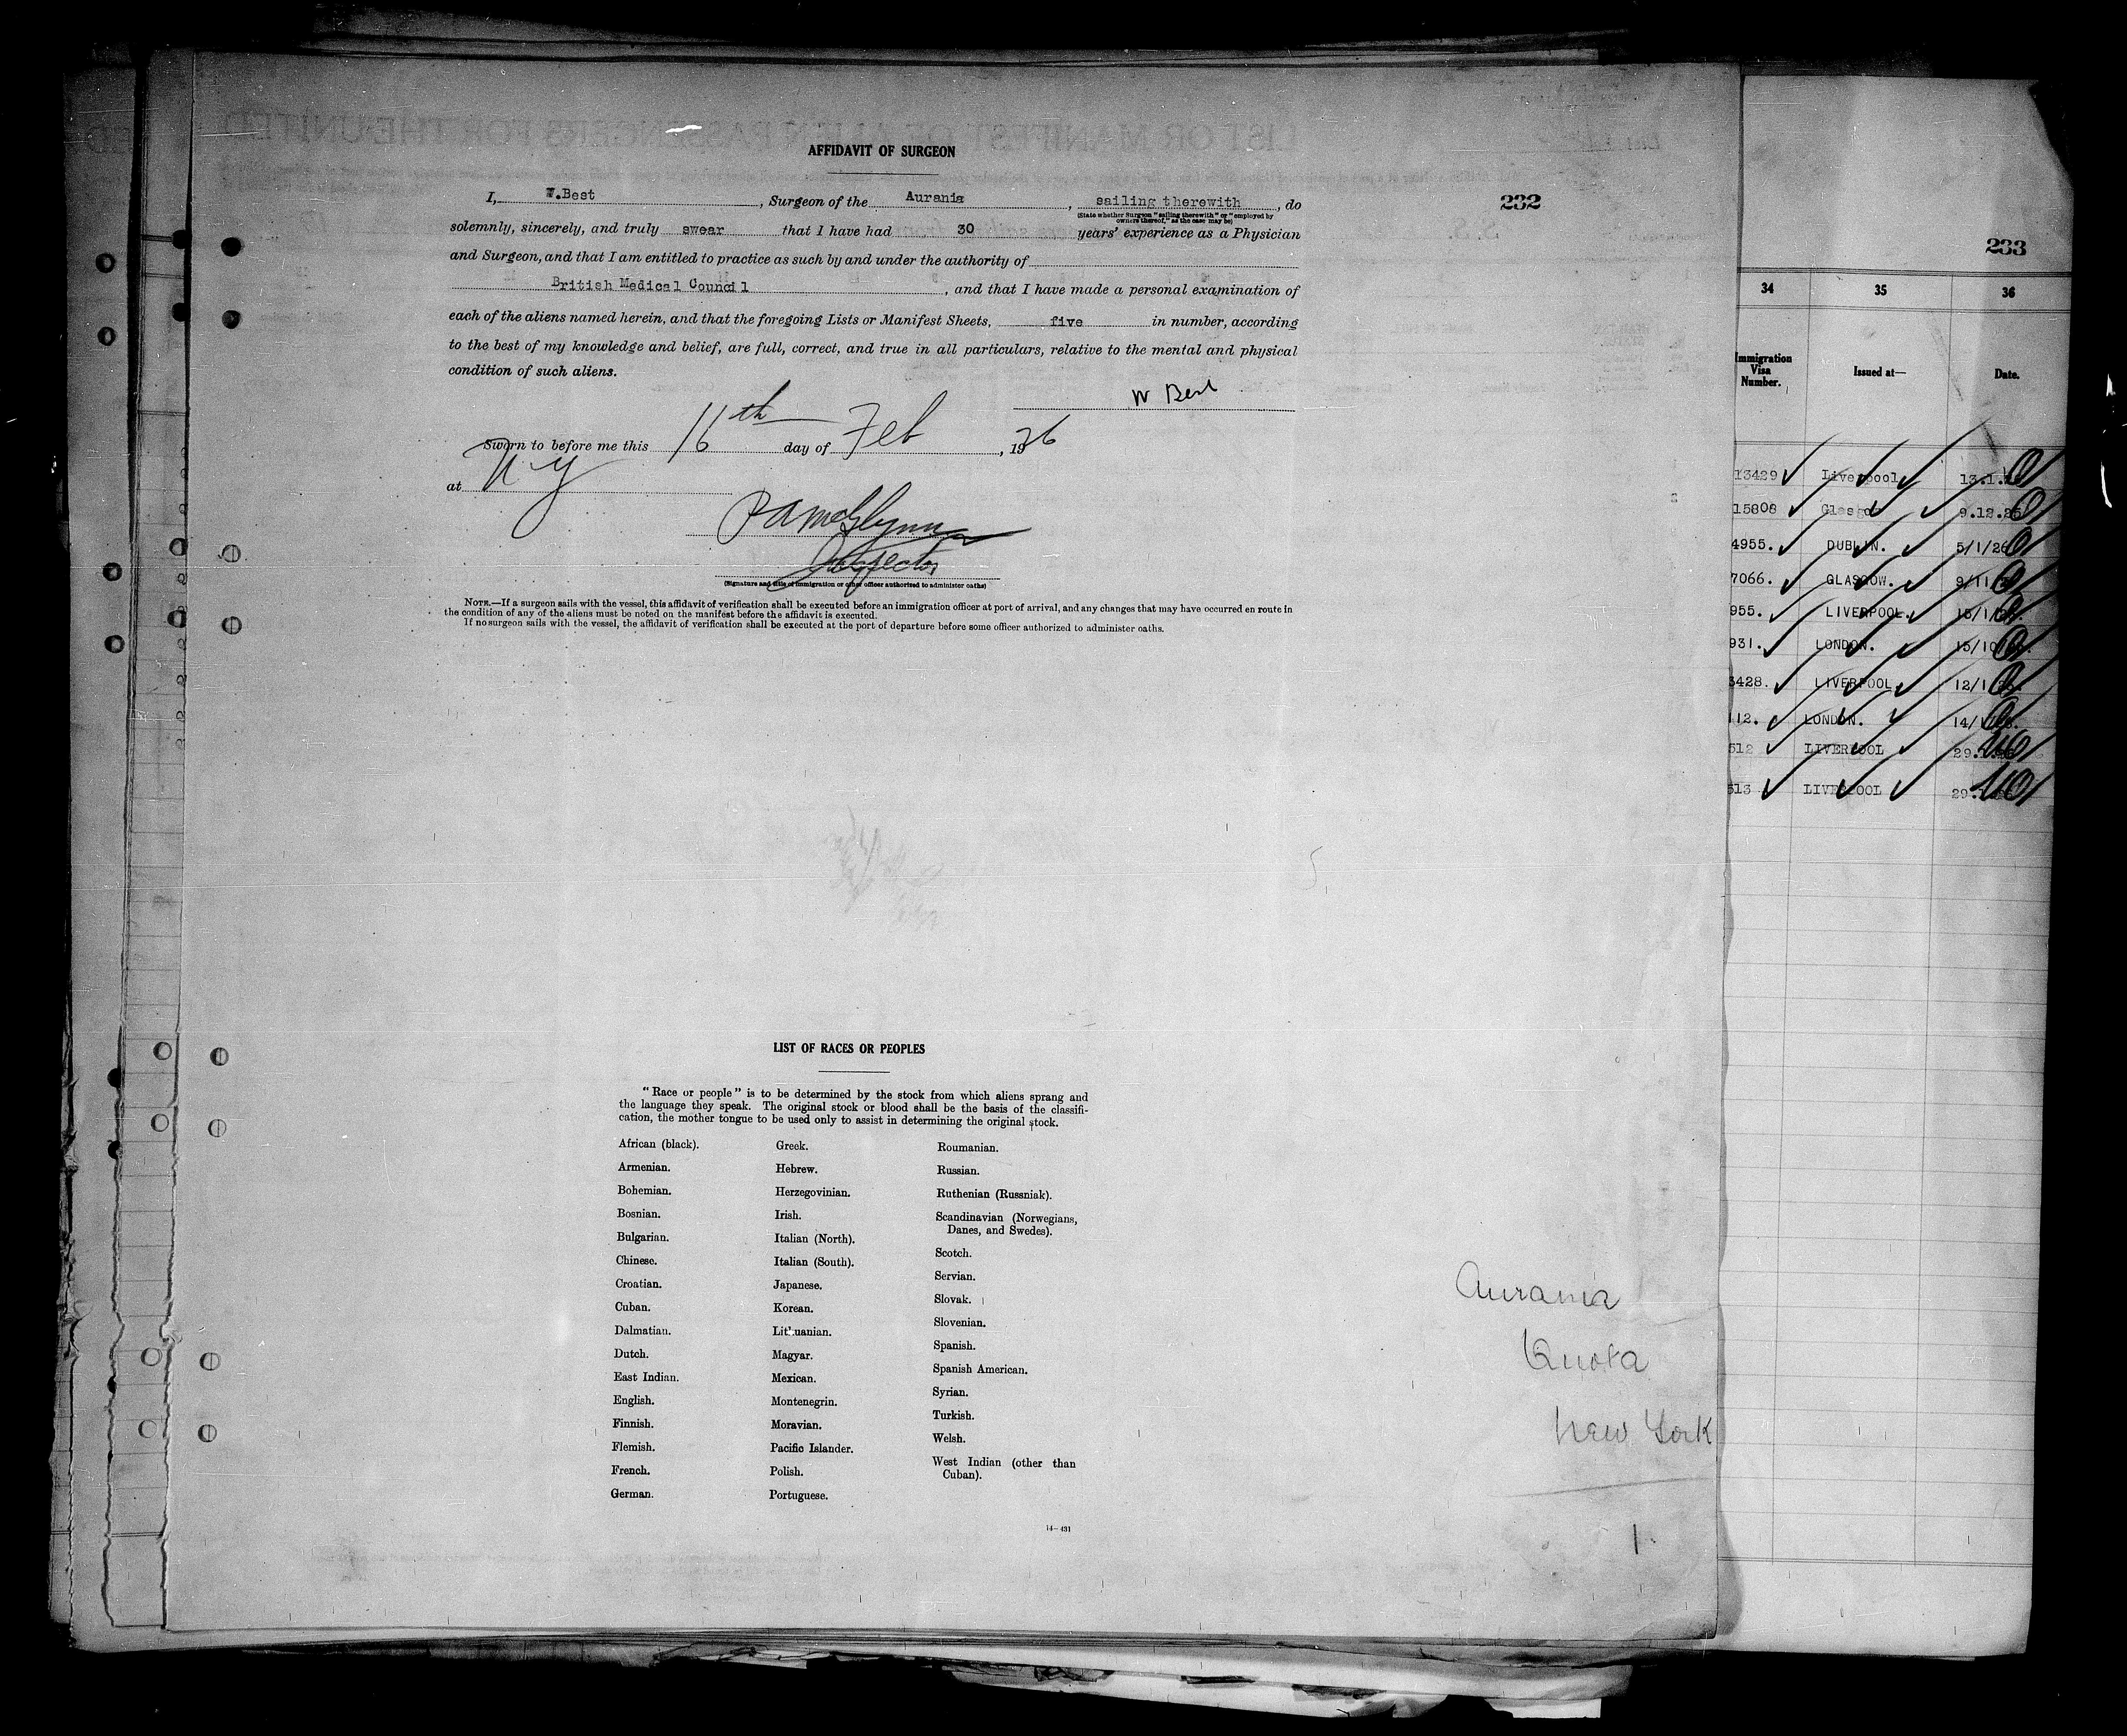 AFFIDAVIT OF SURGEON
I, W.Best, Surgeon of the Aurania, sailing therewith, do
(State whether Surgeon "sailing therewith" or "employed by owners thereof," as the case may be)
solemnly, sincerely, and truly swear that I have had 30 years' experience as a Physician
and Surgeon, and that I am entitled to practice as such by and under the authority of
British Medical Council, and that I have made a personal examination of
each of the aliens named herein, and that the foregoing Lists or Manifest Sheets, five in number, according
to the best of my knowledge and belief, are full, correct, and true in all particulars, relative to the mental and physical
condition of such aliens.
W Best
Sworn to before me this 16th day of Feb, 1926
at N Y
Inspector
(Signature and title of immigration or other officer authorized to administer oaths)
NOTE.—If a surgeon sails with the vessel, this affidavit of verification shall be executed before an immigration officer at port of arrival, and any changes that may have occurred en route in
the condition of any of the aliens must be noted on the manifest before the affidavit is executed.
If no surgeon sails with the vessel, the affidavit of verification shall be executed at the port of departure before some officer authorized to administer oaths.
232
LIST OF RACES OR PEOPLES
"Race or people" is to be determined by the stock from which aliens sprang and
the language they speak. The original stock or blood shall be the basis of the classifi-
cation, the mother tongue to be used only to assist in determining the original stock.
African (black).
Armenian.
Bohemian.
Bosnian.
Bulgarian.
Chinese.
Croatian.
Cuban.
Dalmatian.
Dutch.
East Indian.
English.
Finnish.
Flemish.
French.
German.
Greek.
Hebrew.
Herzegovinian.
Irish.
Italian (North).
Italian (South).
Japanese.
Korean.
Lithuanian.
Magyar.
Mexican.
Montenegrin.
Moravian.
Pacific Islander.
Polish.
Portuguese.
Roumanian.
Russian.
Ruthenian (Russniak).
Scandinavian (Norwegians,
Danes, and Swedes).
Scotch.
Servian.
Slovak.
Slovenian.
Spanish.
Spanish American.
Syrian.
Turkish.
Welsh.
West Indian (other than
Cuban).
14—431
Aurania
Quota
New York
1
233
34 35 36
Immigration
Visa
Number.
Issued at—
Date.
13429 Liverpool 13.1.
15808 Glasgow 9.12.25
4955. DUBLIN. 5/1/26
7066. GLASGOW. 9/11/
955. LIVERPOOL. 15/1/
931. LONDON. 15/10/
3428. LIVERPOOL 12/1
112. LONDON. 14/1
512 LIVERPOOL 29.
513 LIVERPOOL 29.